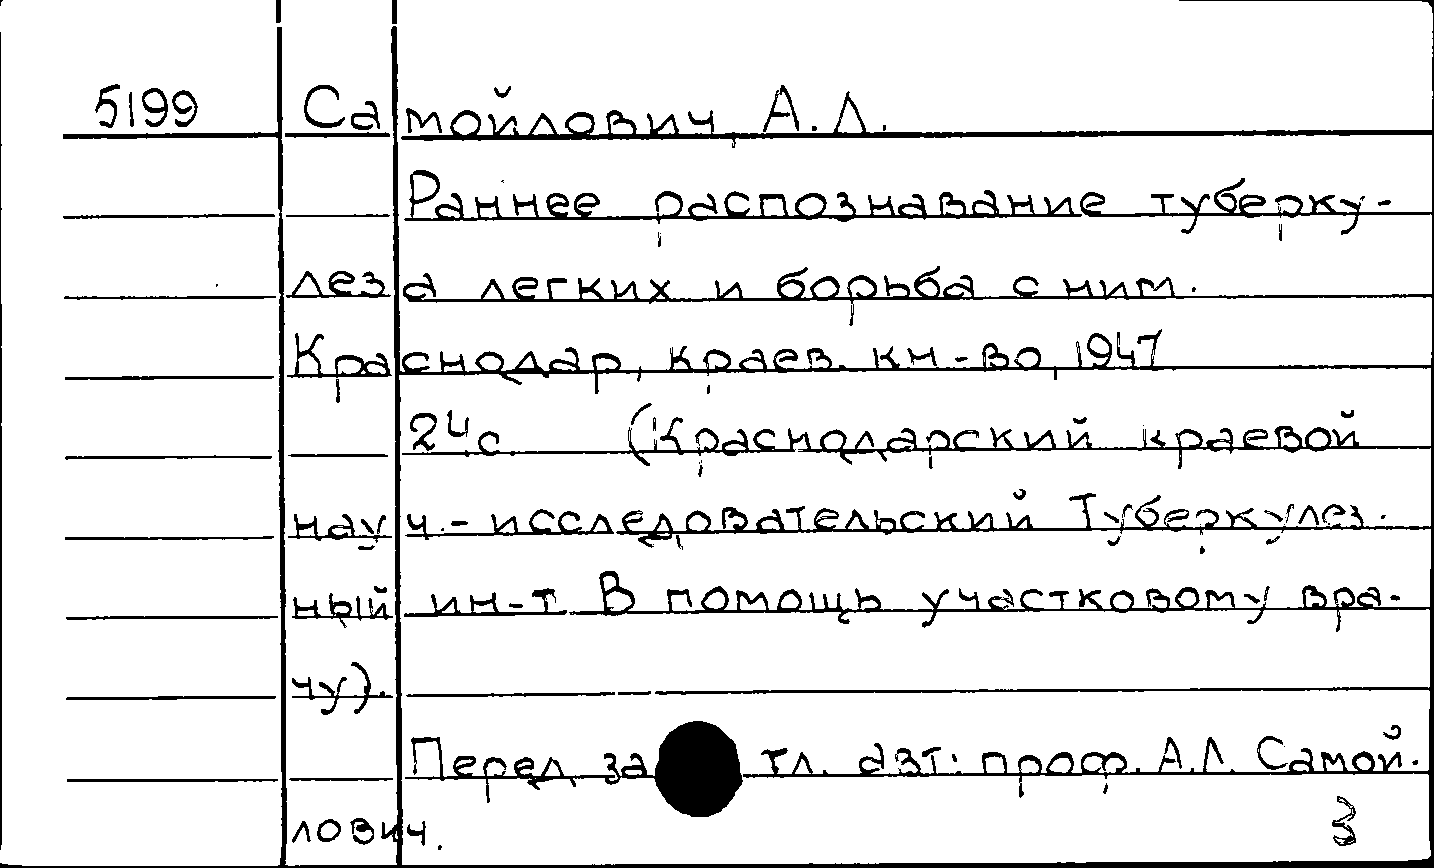 5199 Самойлович, А. Л.
Раннее распознавание туберку-
леза легких и борьба с ним.
Краснодар, краев. кн-во, 1947
24 с. (Краснодарский краевой
науч.-исследовательский Туберкулез-
ный ин-т В помощь участковому вра-
чу).
Перед за тл. азт: проф. А.Л. Самой-
лович.
3